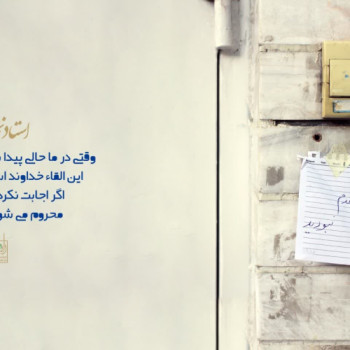 استاد
وقتی در ما حالی پیدا
این القاء خداوند
اگر اجابت نکرد
محروم می شو
نبودید